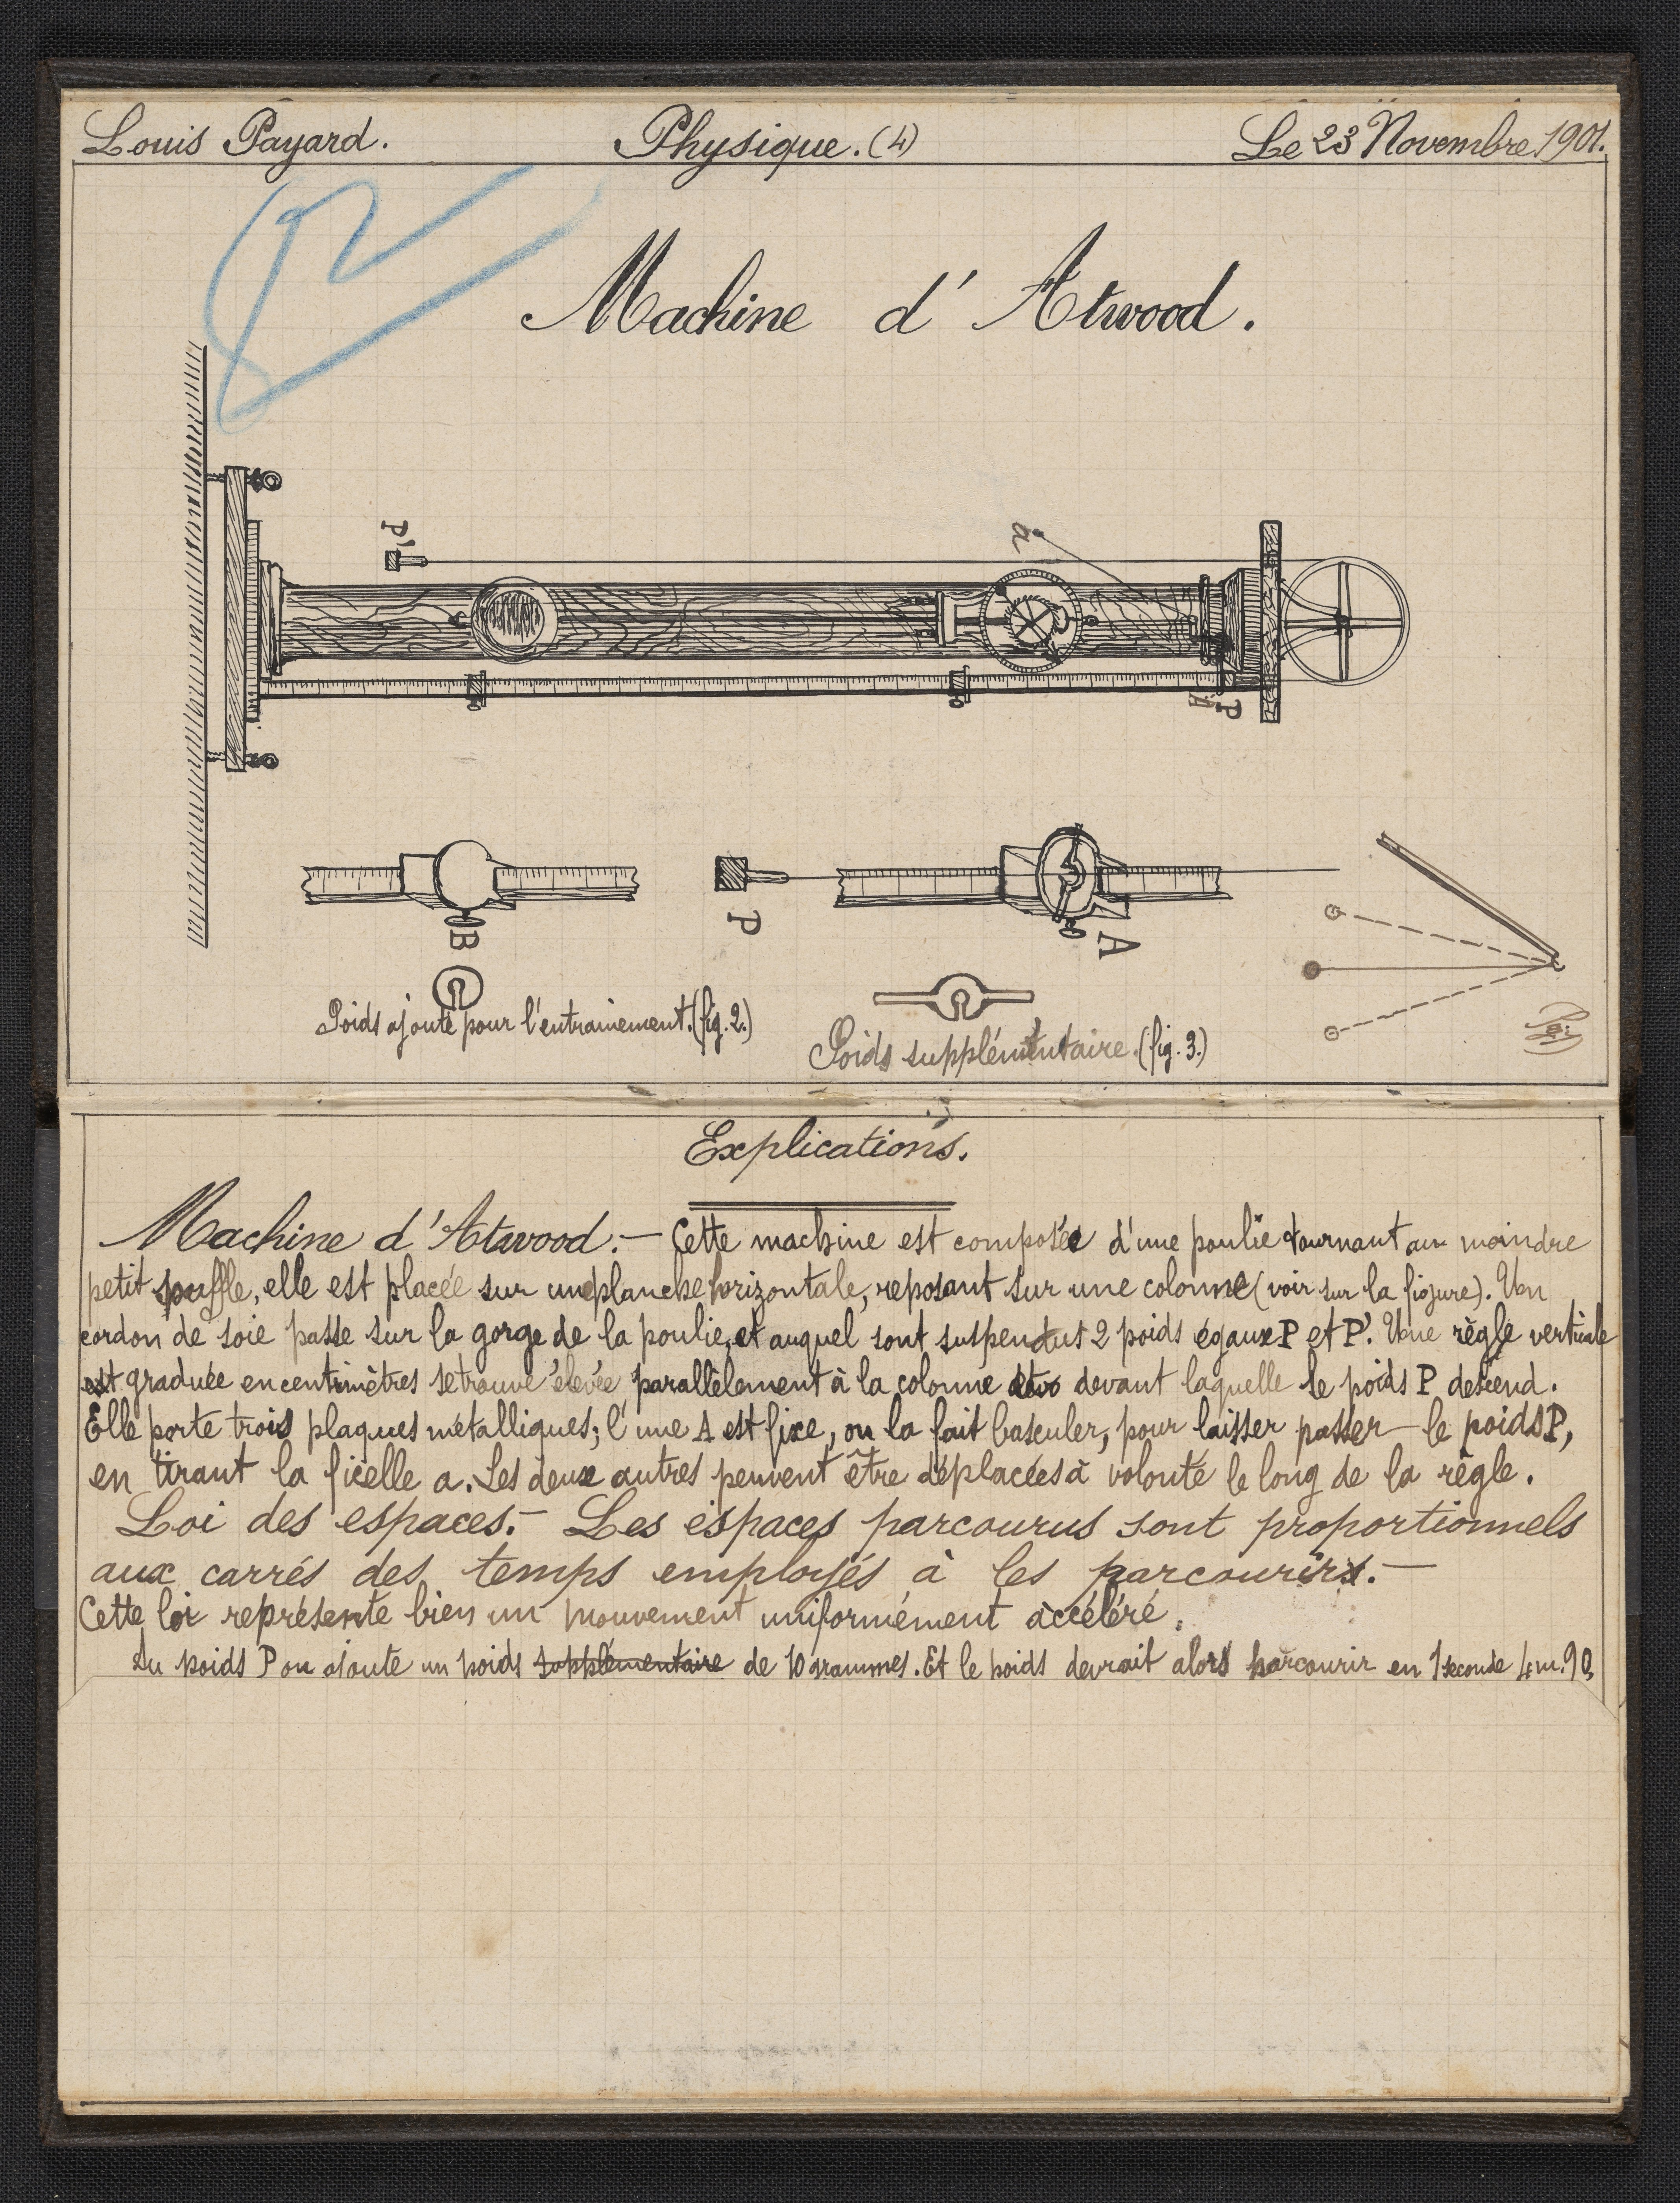 Louis Payard. Physique. (4) Le 23 Novembre 1901.
12
Machine d'Atwood.
P'
a
P
B
P
A
Poids ajouté pour l'entrainement. (fig. 2.)
Poids supplémentaire. (fig. 3.)
Explications.
Machine d'Atwood.— Cette machine est composée d'une poulie tournant au moindre
petit souffle, elle est placée sur une planche horizontale, reposant sur une colonne (voir sur la figure). Un
cordon de soie passe sur la gorge de la poulie, et auquel sont suspendus 2 poids égaux P et P'. Une règle verticale
est graduée en centimètres se trouve élevée parallèlement à la colonne devant laquelle le poids P descend.
Elle porte trois plaques métalliques; l'une A est fixe, on la fait basculer, pour laisser passer le poids P,
en tirant la ficelle a. Les deux autres peuvent être déplacées à volonté le long de la règle.
Loi des espaces.— Les espaces parcourus sont proportionnels
aux carrés des temps employés à les parcourirs.—
Cette loi représente bien un mouvement uniformément accéléré.
Au poids P on ajoute un poids supplémentaire de 10 grammes. Et le poids devrait alors parcourir en 1 seconde 4m.90,